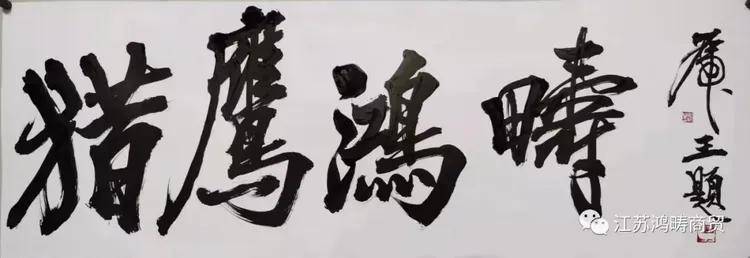 猎鹰鸿畴
虎王题
江苏鸿畴商贸